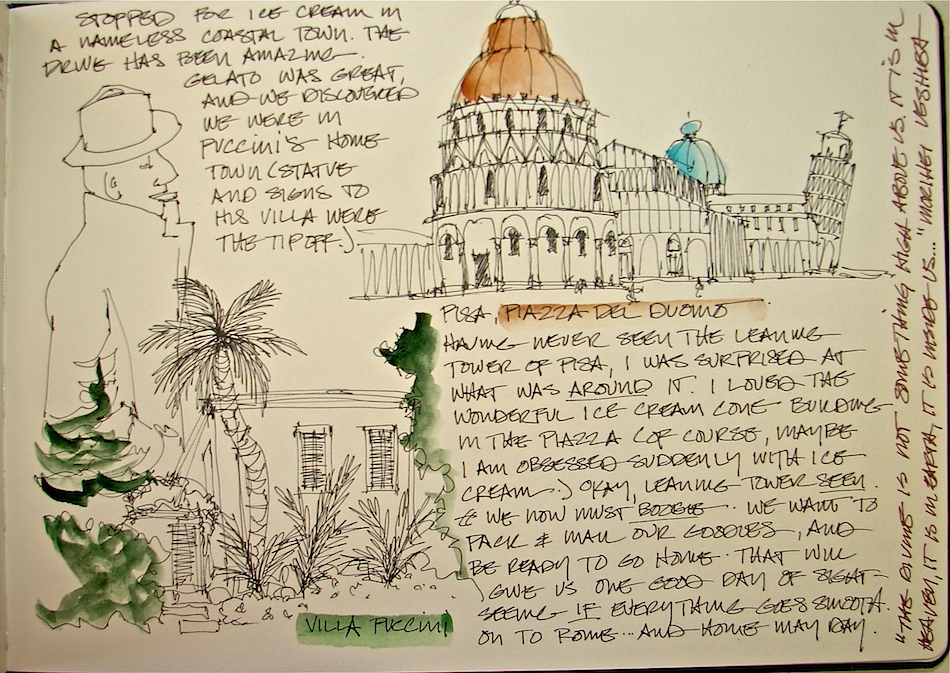 STOPPED FOR ICE CREAM IN
A NAMELESS COASTAL TOWN. THE
DRIVE HAS BEEN AMAZING.
GELATO WAS GREAT,
AND WE DISCOVERED
WE WERE IN
PUCCINI'S HOME
TOWN (STATUE
AND SIGNS TO
HIS VILLA WERE
THE TIP OFF.)
VILLA PUCCINI
PISA, PIAZZA DEL DUOMO
HAVING NEVER SEEN THE LEANING
TOWER OF PISA, I WAS SURPRISED AT
WHAT WAS AROUND IT. I LOVED THE
WONDERFUL ICE CREAM CONE BUILDING
IN THE PIAZZA (OF COURSE, MAYBE
I AM OBSESSED SUDDENLY WITH ICE
CREAM..) OKAY, LEANING TOWER SEEN.
& WE NOW MUST BOOGIE.. WE WANT TO
PACK & MAIL OUR GOODIES, AND
BE READY TO GO HOME.. THAT WILL
GIVE US ONE GOOD DAY OF SIGHT-
SEEING IF EVERYTHING GOES SMOOTH.
ON TO ROME... AND HOME MAY DAY.
"THE DIVINE IS NOT SOMETHING HIGH ABOVE US. IT IS IN
HEAVEN, IT IS IN EARTH, IT IS INSIDE US..." MORIHEI UESHIBA